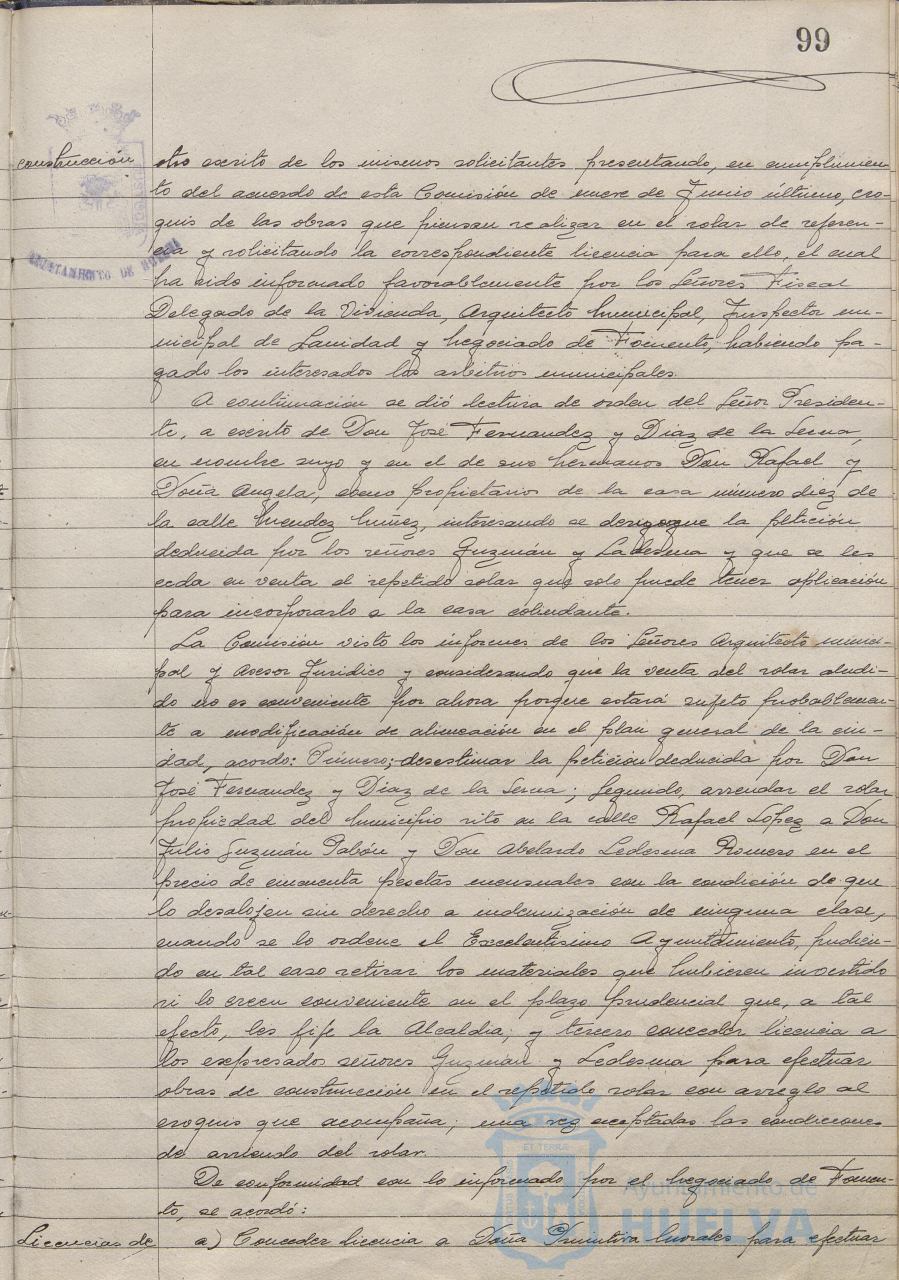 99
construcción otro escrito de los mismos solicitantes presentando, en cumplimien-
to del acuerdo de esta Comisión de nueve de Junio último, cro-
quis de las obras que piensan realizar en el solar de referen-
cia y solicitando la correspondiente licencia para ello, el cual
AYUNTAMIENTO DE HUELVA
ha sido informado favorablemente por los Señores Fiscal
Delegado de la Vivienda, Arquitecto Municipal, Inspector mu-
nicipal de Sanidad y Negociado de Fomento, habiendo pa-
gado los interesados los arbitrios municipales.
A continuación se dió lectura de orden del Señor Presiden-
te, a escrito de Don José Fernandez y Diaz de la Serna,
en nombre suyo y en el de sus hermanos Don Rafael y
Doña Angela, como propietarios de la casa número diez de
la calle Mendez Nuñez, interesando se deniegue la petición
deducida por los señores Guzmán y Ledesma y que se les
ceda en venta el repetido solar que solo puede tener aplicación
para incorporarlo a la casa colindante.
La Comisión visto los informes de los Señores Arquitecto munici-
pal y Asesor Jurídico y considerando que la venta del solar aludi-
do no es conveniente por ahora porque estará sujeto probablemen-
te a modificación de alineación en el plan general de la ciu-
dad, acordo: Primero; desestimar la petición deducida por Don
José Fernandez y Diaz de la Serna; Segundo, arrendar el solar
propiedad del Municipio sito en la calle Rafael López a Don
Julio Guzmán Pabón y Don Abelardo Ledesma Romero en el
precio de cincuenta pesetas mensuales con la condición de que
lo desalojen sin derecho a indemnización de ninguna clase,
cuando se lo ordene el Excelentísimo Ayuntamiento, pudien-
do en tal caso retirar los materiales que hubiesen invertido
si lo creen conveniente en el plazo prudencial que, a tal
efecto, les fije la Alcaldia; y tercero conceder licencia a
los expresados señores Guzmán y Ledesma para efectuar
obras de construcción en el repetido solar con arreglo al
croquis que acompaña, una vez aceptadas las condiciones
de arriendo del solar.
De conformidad con lo informado por el Negociado de Fomen-
to, se acordó:
Licencias de a) Conceder licencia a Doña Primitiva Morales para efectuar
ET TERRA
Ayuntamiento de
HUELVA